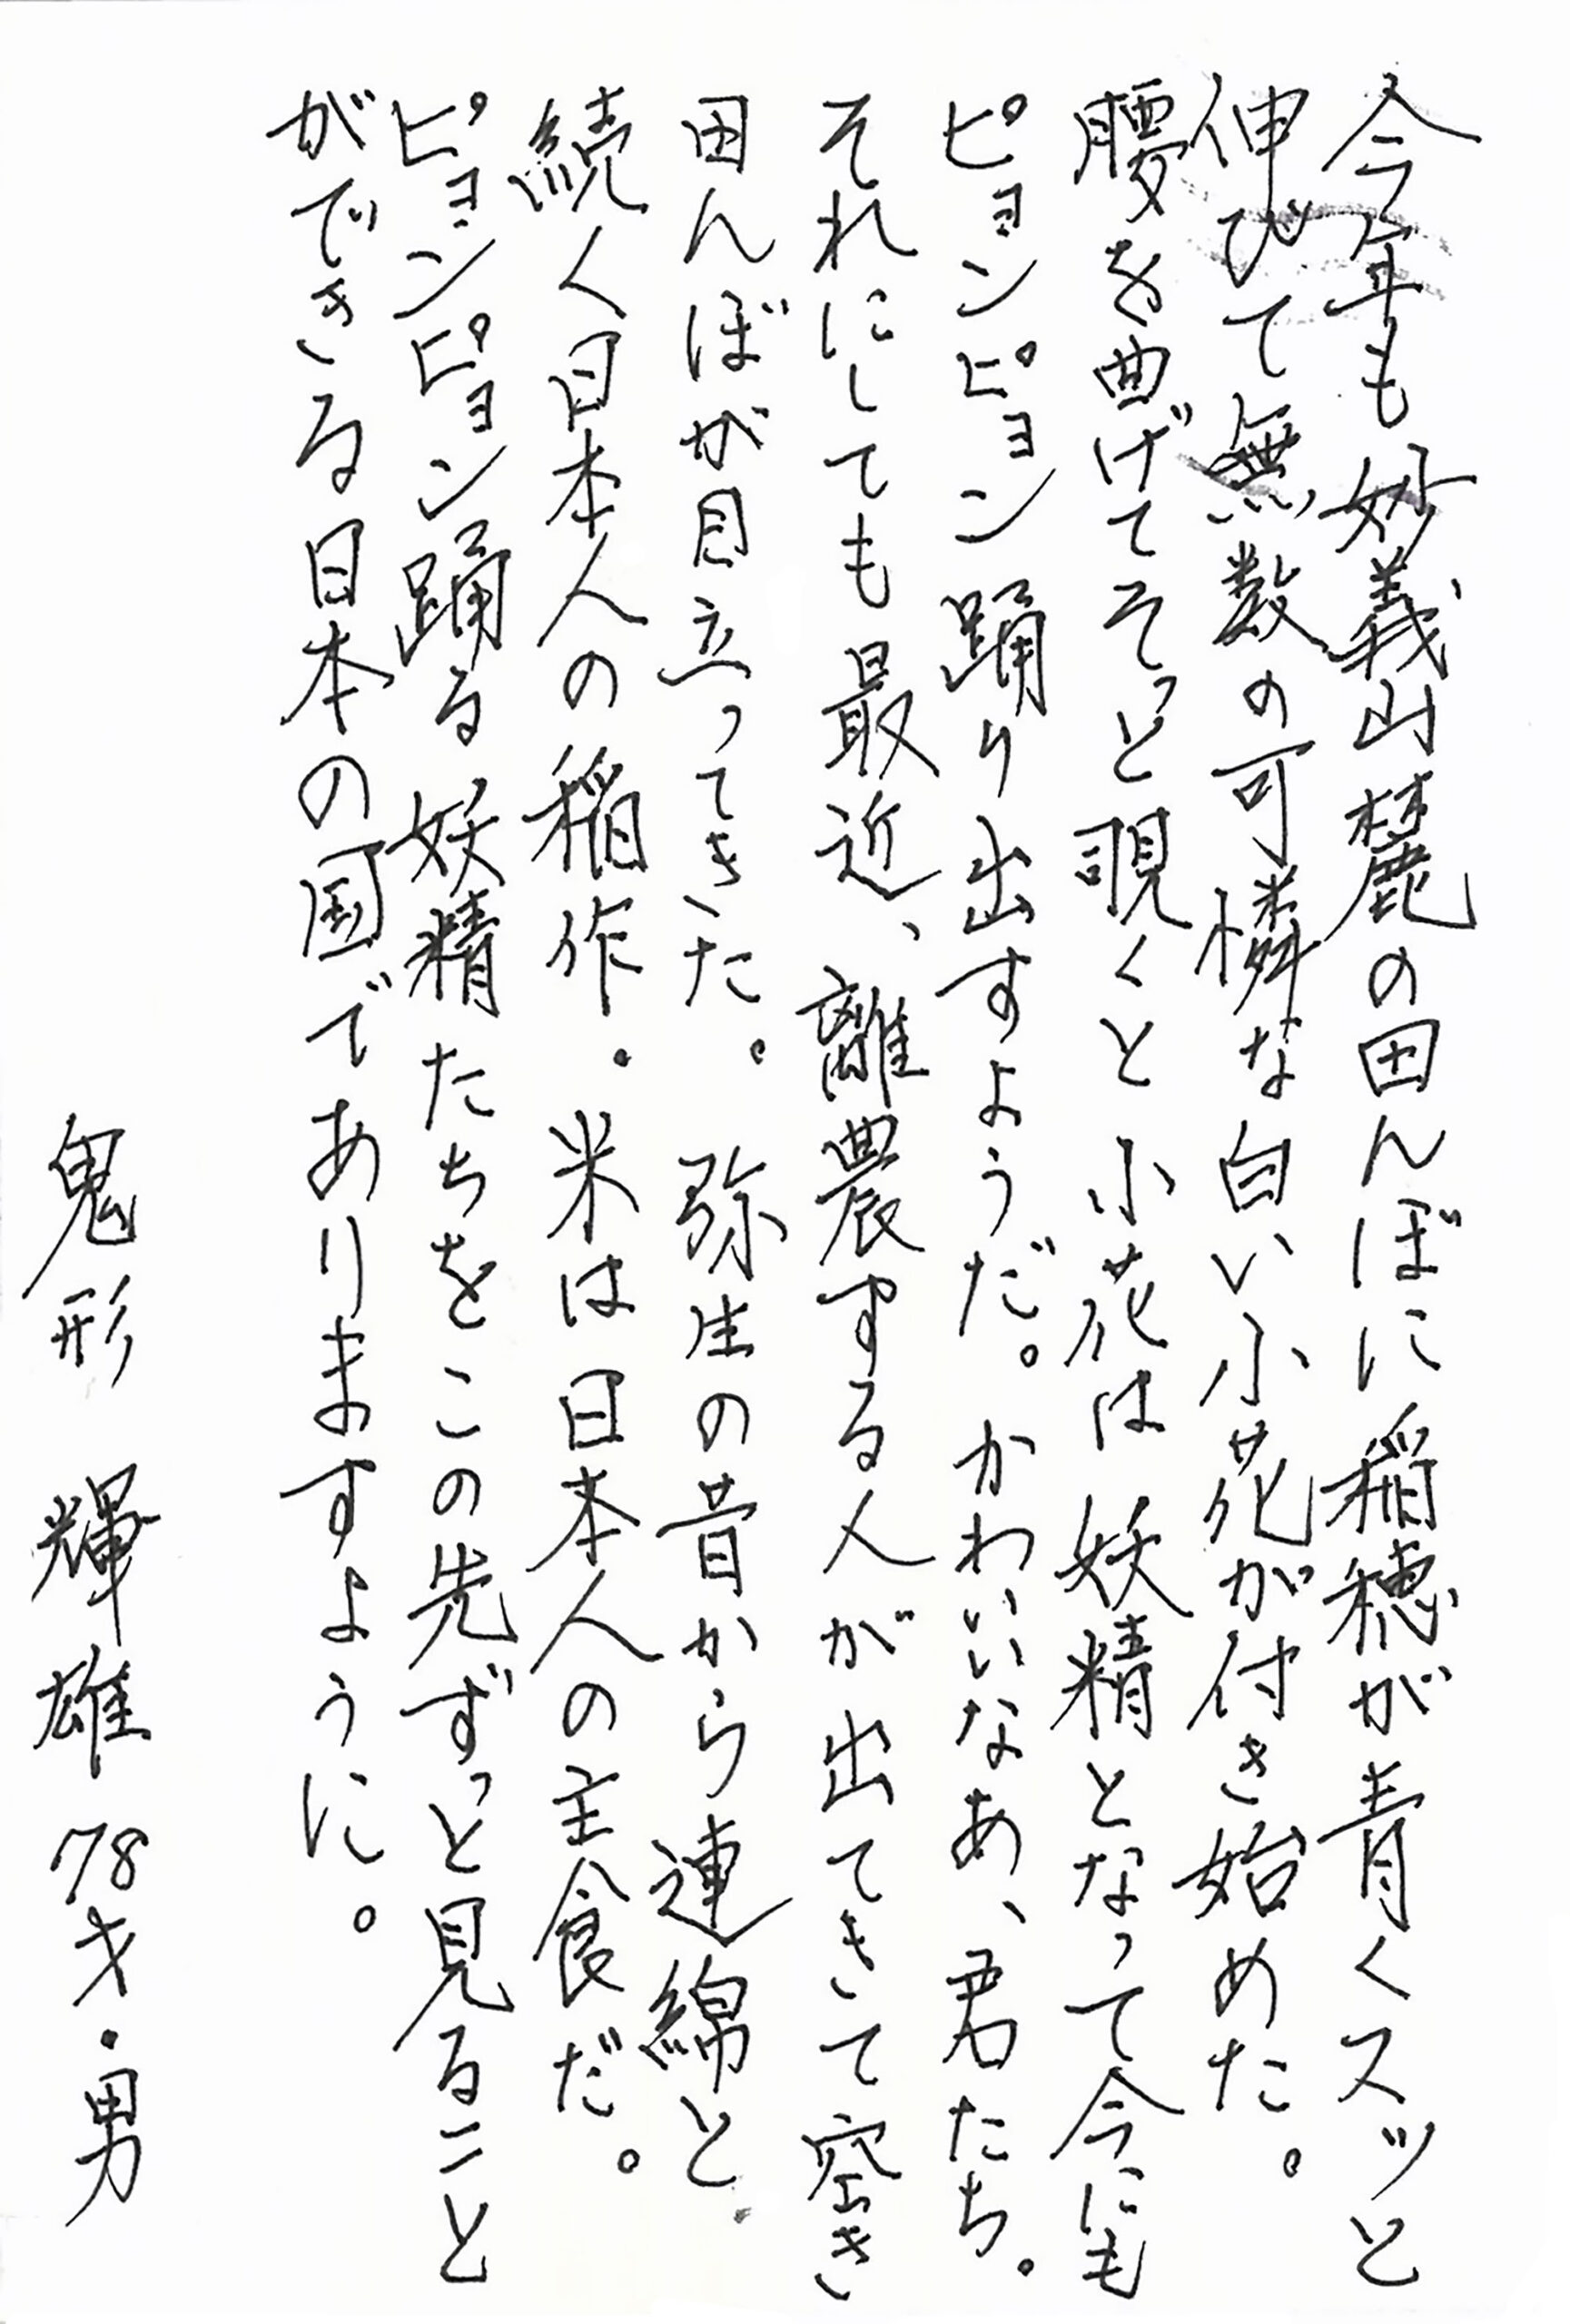 今年も妙義山麓の田んぼに稲穂が青くスッと
伸びて無数の可憐な白い小花が付き始めた。
腰を曲げてそっと覗くと小花は妖精となって今にも
ピョンピョン踊り出すようだ。かわいいなあ、君たち。
それにしても最近、離農する人が出てきて空き
田んぼが目立ってきた。弥生の昔から連綿と
続く日本人の稲作。米は日本人の主食だ。
ピョンピョン踊る妖精たちをこの先ずっと見ること
ができる日本の国でありますように。
鬼形 輝雄 78才・男